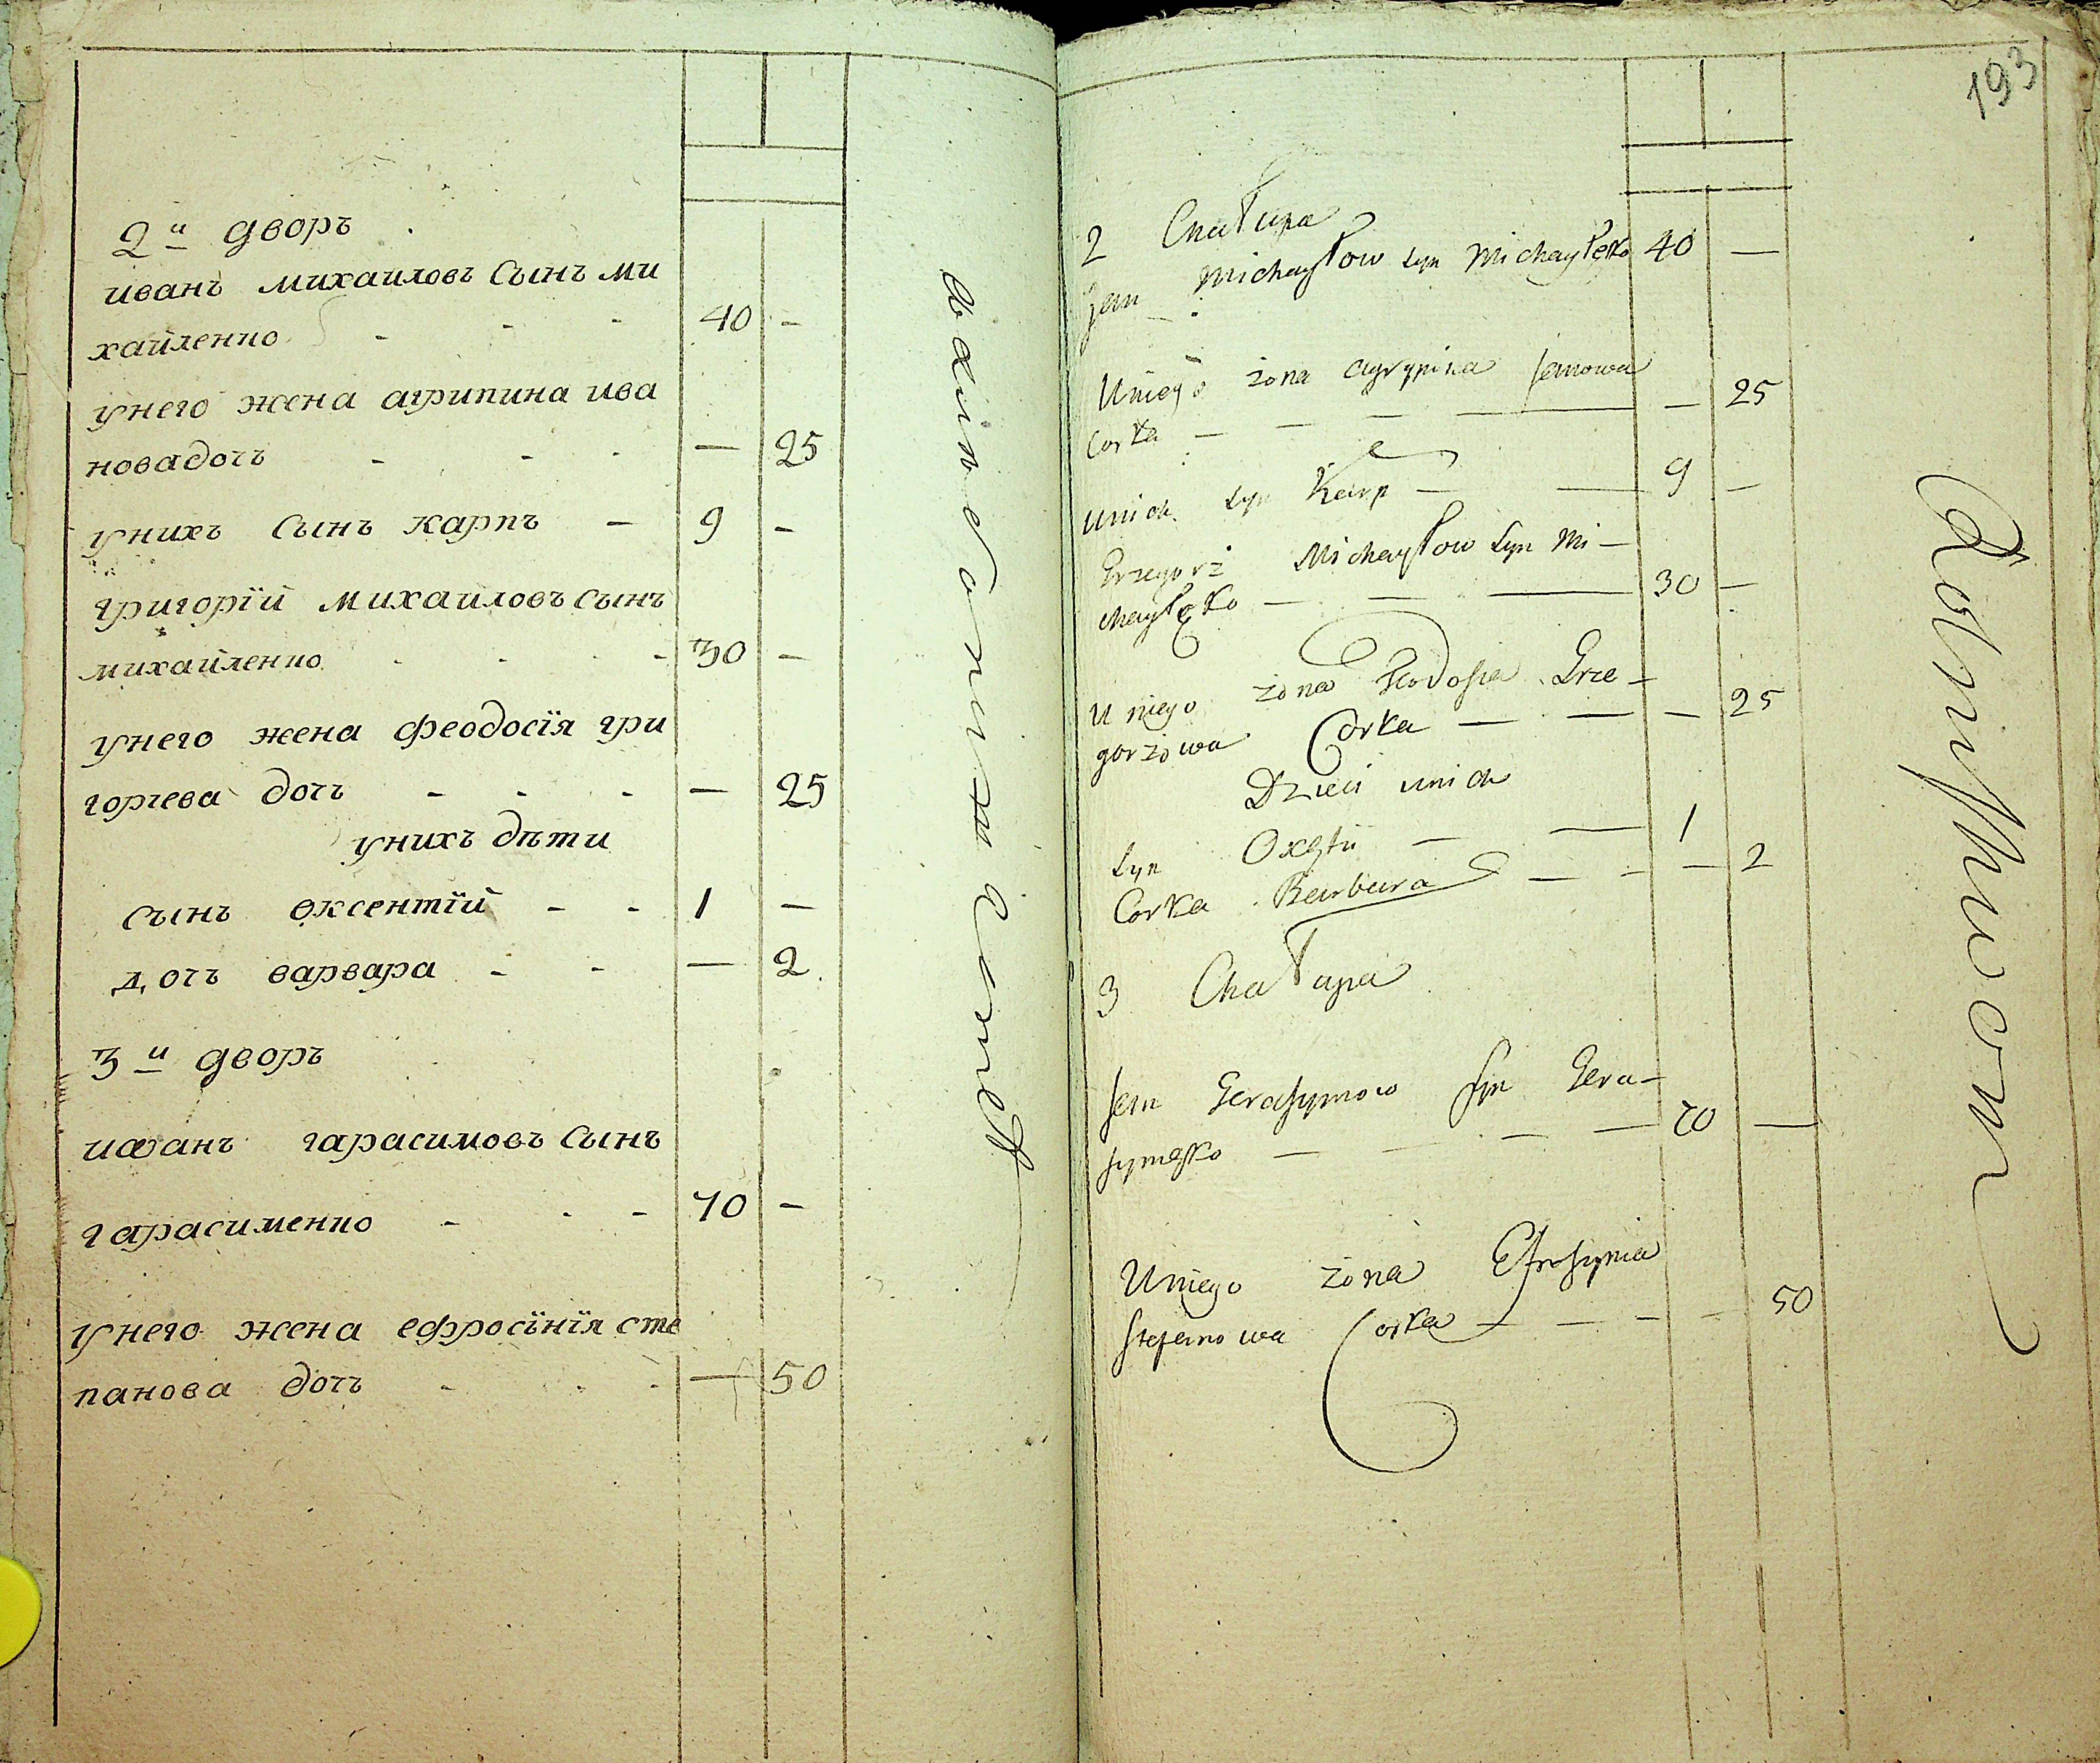 2й дворъ
иванъ михаиловъ сынъ ми
хайленко - - - 40 -
унего жена агрипина ива
новадочъ - - - — 25
унихъ сынъ карпъ - 9 -
григорїй михаиловъ сынъ
михайленко - - - 30 -
унего жена феодосїя гри
горъева дочъ - - - — 25
унихъ дѣти
сынъ оксентїй - - 1 -
дочъ варвара - - — 2
3й дворъ
иванъ гарасимовъ сынъ
гарасименко - - - 70 -
унего жена ефросїнїя сте
панова дочъ - - - — 50
193
2 Chałupa
Jan Michayłow Syn Michayłęko 40 —
Uniego żona Agrypina Janowa
Corka — — — — — 25
Unich Syn Karp — — 9 —
Grzegorż Michayłow Syn Mi-
chayłęko — — — 30 —
Uniego żona Teodosia Grze-
gorżowa Corka — — — 25
Dzieci unich
Syn Oxęti — — 1
Corka Barbara — - — 2
3 Chałupa
Jan Gerasymow Syn Gera-
symęko — — — — 70 —
Uniego żona Efrosynia
Stefanowa Corka — — - - 50